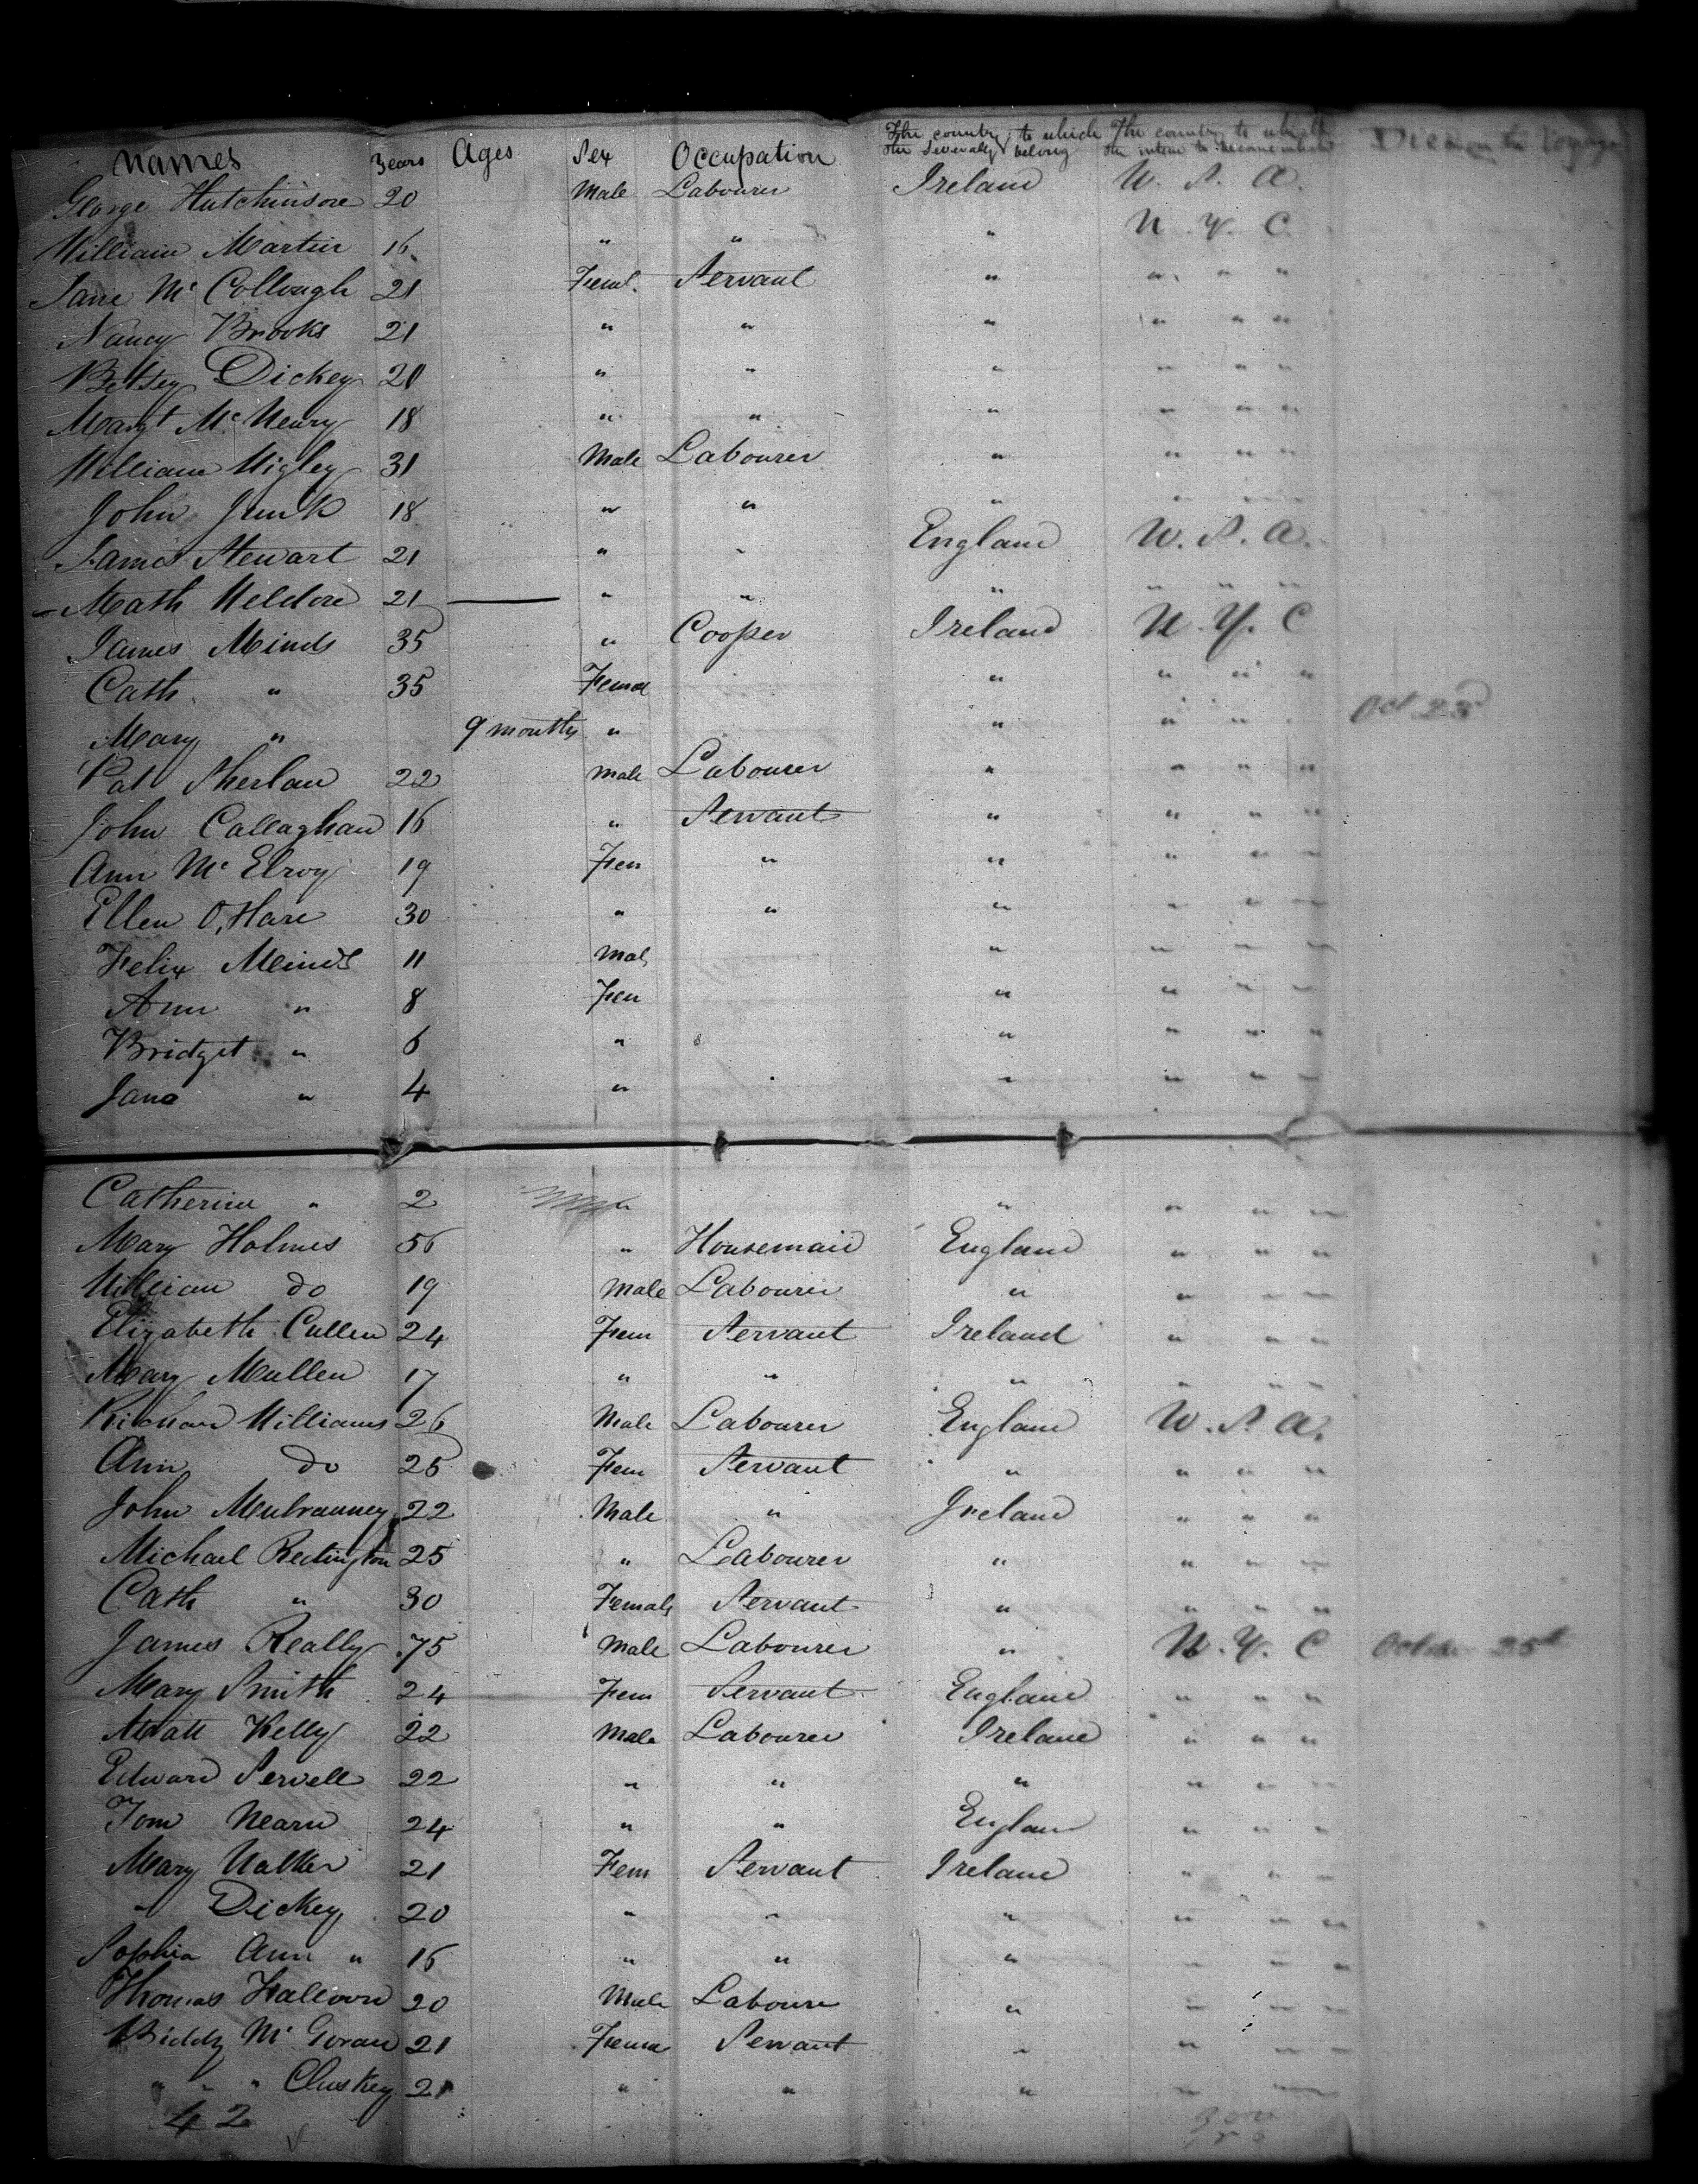 Names Years Ages Sex Occupation The country to which the severally belong The country to which the intend to become Died on the Voyage
George Hutchinson 20 Male Labourer Ireland U. S. A.
William Martin 16 " " " N. Y. C.
Jane Mc Collough 21 Feml. Servant " " " "
Nancy Brooks 21 " " " " " "
Betsey Dickey 20 " " " " " "
Margt Mc Henry 18 " " " " " "
William Wigley 31 Male Labourer " " " "
John Junk 18 " " " " " "
James Stewart 21 " " England U. S. A.
Math Weldon 21 — " " " " " "
James Meinds 35 " Cooper Ireland N. Y. C
Cath " 35 Femal " " " "
Mary " 9 months " " " " Oct 23
Pat Sherlan 22 Male Labourer " " " "
John Callaghan 16 " Servant " " " "
Ann Mc Elroy 19 Fem " " " " "
Ellen O, Hare 30 " " " " " "
Felix Meinds 11 Mal " " " "
Ann " 8 Fem " " " "
Bridget " 6 " " " " "
Jane " 4 " " " " "
Catherine " 2 " " " " "
Mary Holmes 56 " Housemaid England " " "
William do 19 Male Labourer " " " "
Elizabeth Cullen 24 Fem Servant Ireland " " "
Mary Mullen 17 " " " " " "
Richard Williams 26 Male Labourer England U. S. A.
Ann do 25 Fem Servant " " " "
John Mulranney 22 Male " Ireland " " "
Michael Redington 25 " Labourer " " " "
Cath " 30 Female Servant " " " "
James Really 75 Male Labourer " N. Y. C October 25th
Mary Smith 24 Fem Servant England " " "
Matt Kelly 22 Male Labourer Ireland " " "
Edward Servell 22 " " " " " "
Tom Nearn 24 " " England " " "
Mary Walker 21 Fem Servant Ireland " " "
" Dickey 20 " " " " " "
Sophia Ann " 16 " " " " " "
Thomas Falloon 20 Male Labourer " " " "
Biddy Mc Goran 21 Femal Servant " " " "
" " " Cluskey 21 " " " " " "
42